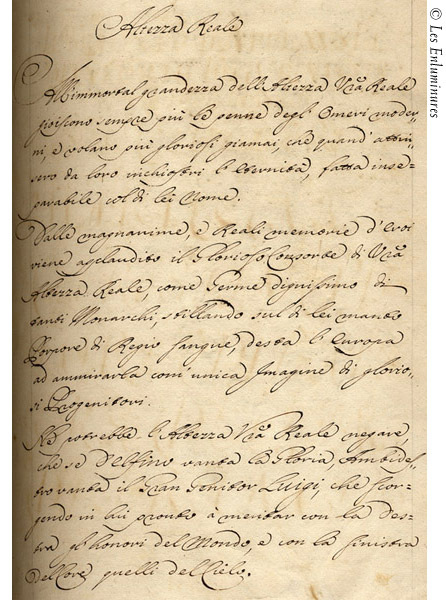 Altezza Reale
All'immortal grandezza dell'Altezza Vra Reale
gioiscono sempre più le penne degl'Omeri moder-
ni e volano più gloriosi giamai, che quand'attin-
sero da loro inchiostri l'Eternità, fatta inse-
parabile col di lei Nome.
Dalle magnanime, e Reali memorie d'Eroi
viene applaudito il Glorioso Consorte di Vra
Altezza Reale, come Germe dignissimo di
tanti Monarchi, stillando sul di lei manto
Porpore di Regio sangue, desta l'Europa
ad ammirarla com'unica Imagine di glorio-
si Progenitori.
Nè potrebbe l'Altezza Vra Reale negare,
che se Delfino vanta la Gloria, Ambides-
tro vanta il Gran Genitor Luigi, che scor-
gendo in lui pronto à mentar con la Des-
tra gl'honori del Mondo, e con la sinistra
del Core quelli del Cielo.
© Les Enluminures